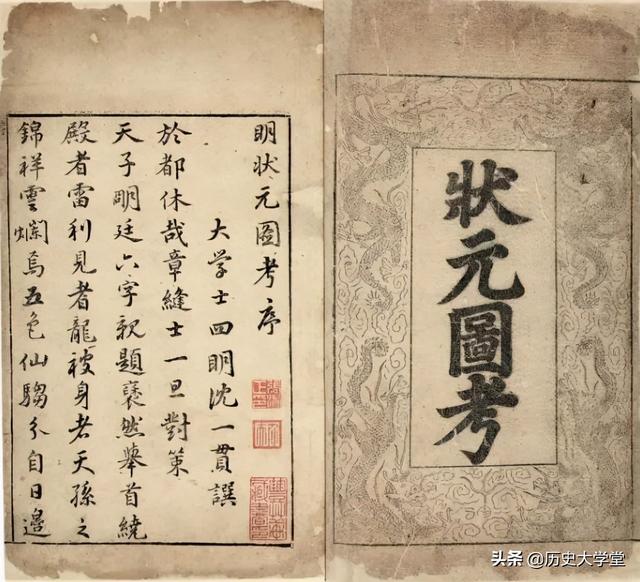 狀元圖考
明状元圖考序
大学士四明沈一貫譔
於都休哉章縫士一旦對策
天子明廷六字親題褎然舉首繞
殿者雷利見者龍被身者天孫之
錦祥雲爛焉五色仙騶分自日邉
头条 @历史大学堂